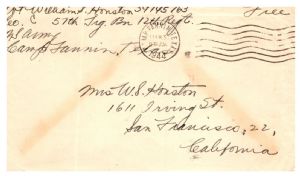 Pvt William S. Houston 34145763
Co. C 57th Trg. Bn 12th Regt.
US Army
Camp Fannin, Texas
Free
1944
Mrs W.S. Houston
1611 Irving St.
San Francisco, 22,
California